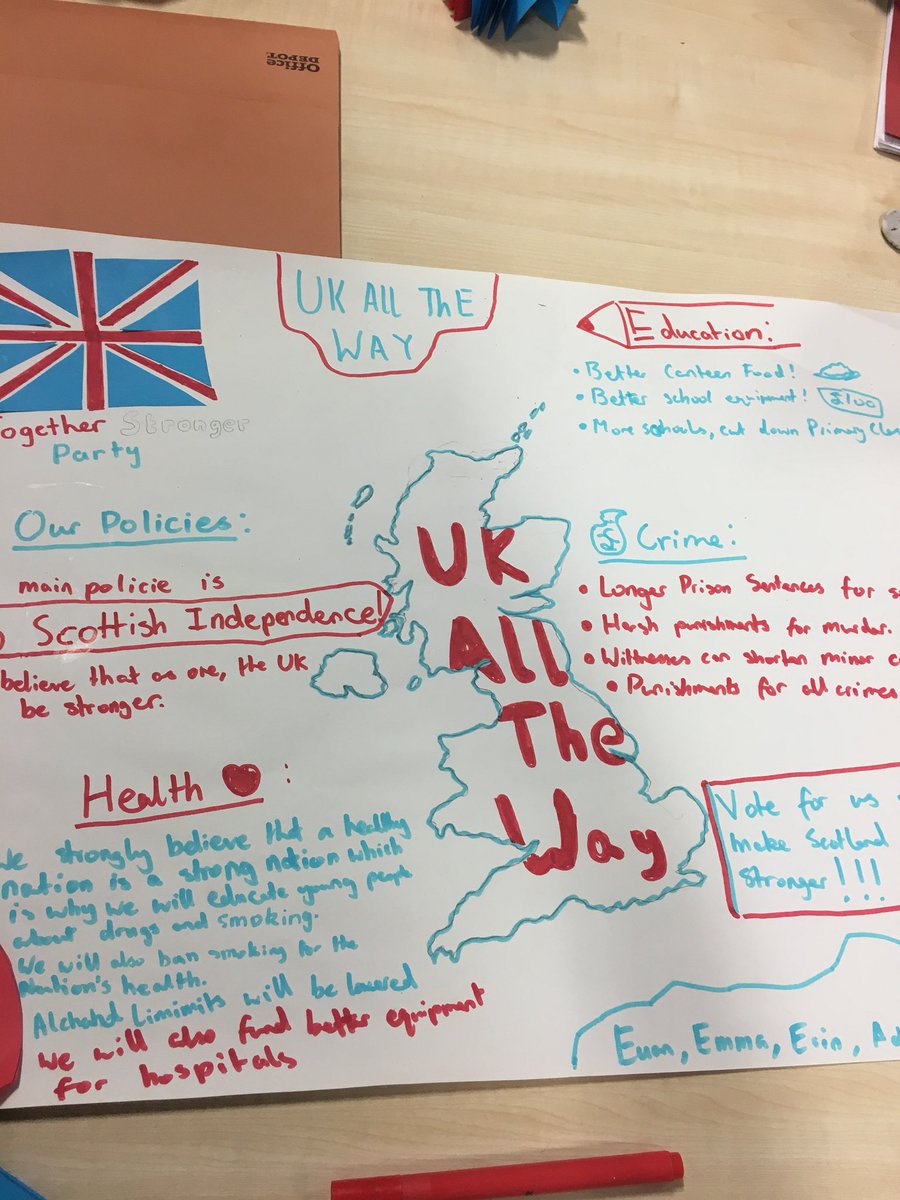 Office
DEPOT
UK All ThE
WAY
Together Stronger
Party
Education:
• Better Canteen Food!
• Better school equipment! £100
• More schools, cut down Primary
Our Policies:
main policie is
Scottish Independence!
believe that as one, the UK
be stronger.
UK
All
The
Way
Crime:
• Longer Prison Sentences for
• Harsh punishments for murder.
• Wittnesses can shorten minor
• Punishments for all crimes
Health :
we strongly believe that a healthy
nation is a strong nation which
is why we will educate young people
about drugs and smoking.
We will also ban smoking for the
Nation's health.
Alchahol Limimits will be lowered
We will also fund better equipment
for hospitals
Vote for us
make Scotland
stronger!!!
Euan, Emma, Erin,